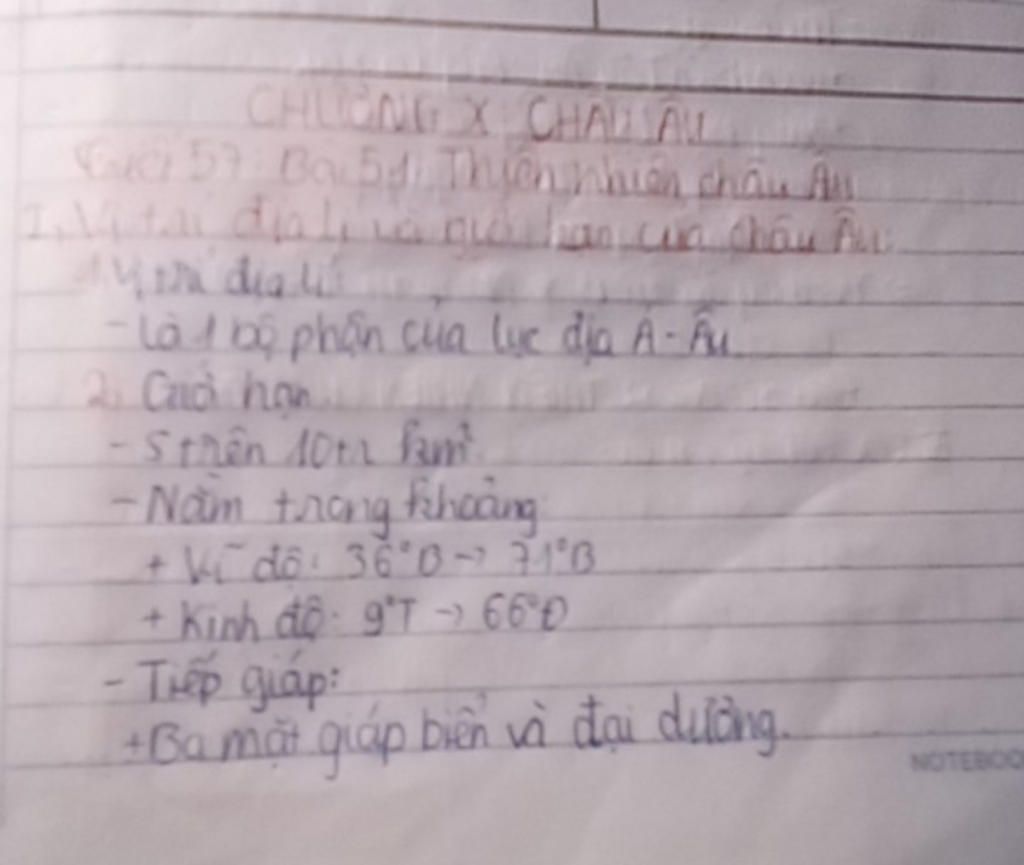 CHƯƠNG X CHÂU ÂU
57: Bài 51: Thiên nhiên châu Âu
I, Vị trí địa lí và giới hạn của châu Âu
1. Vị trí địa lí
- Là 1 bộ phận của lục địa Á - Âu
2. Giới hạn
- S trên 10tr km²
- Nằm trong khoảng
+ Vĩ độ: 36°B → 71°B
+ Kinh độ: 9°T → 66°Đ
- Tiếp giáp:
+ Ba mặt giáp biển và đại dương.
NOTEBOO